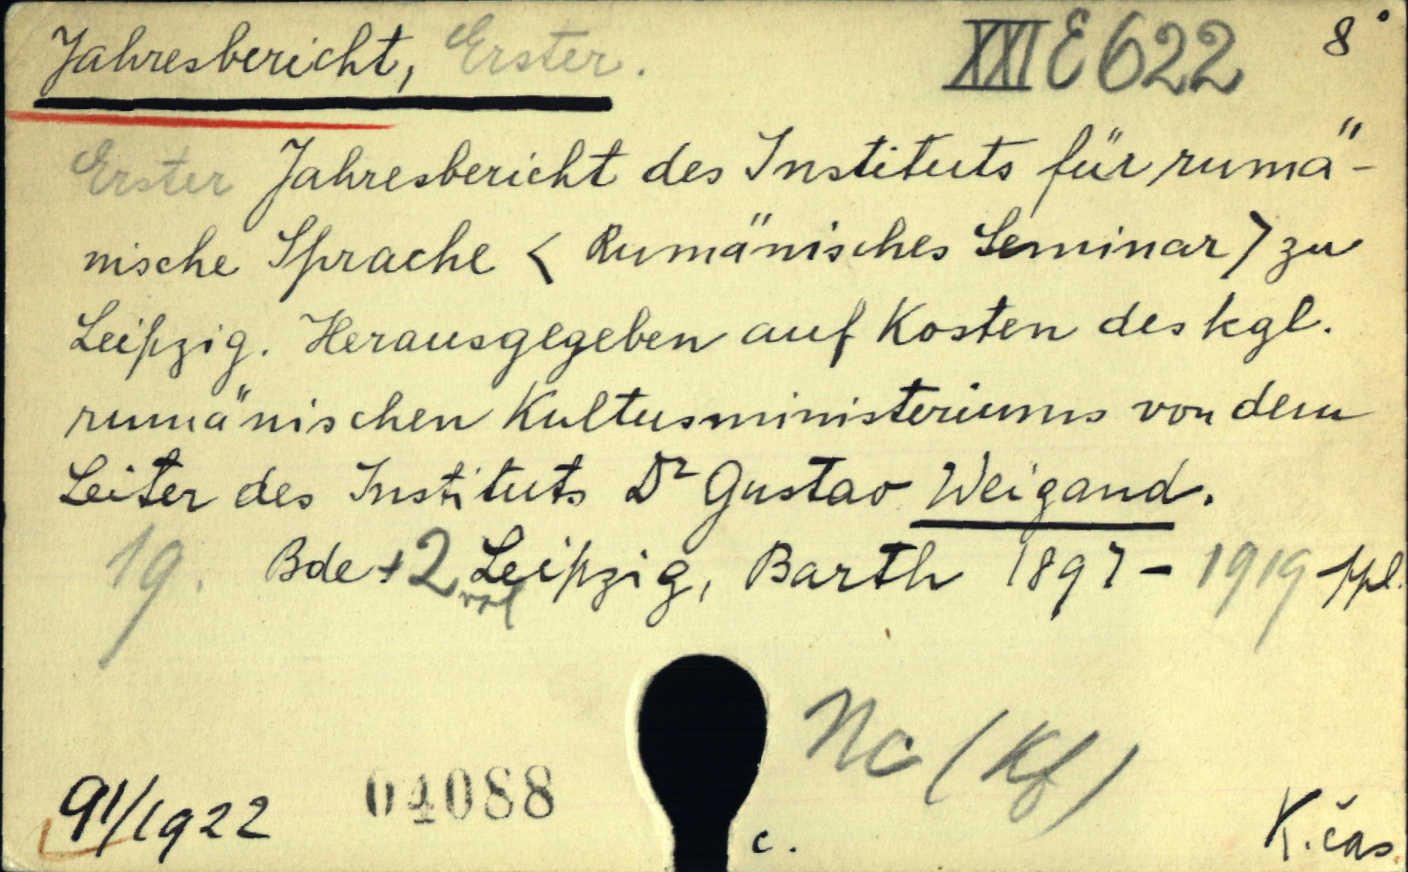 Jahresbericht, Erster. XXI E 622 8°
Erster Jahresbericht des Instituts für rumä-
nische Sprache < Rumänisches Seminar > zu
Leipzig. Herausgegeben auf Kosten des kgl.
rumänischen Kultusministeriums von dem
Leiter des Instituts Dr Gustav Weigand.
19. Bde + 2 Leipzig, Barth 1897 – 1919 ppl.
Nc (Kf)
91/1922 04088 c. K. čas.